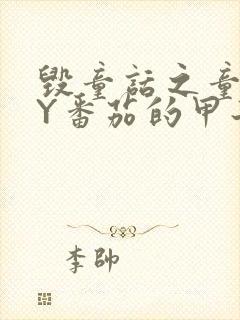 毁童话之童
Y番茄的甲
李帅